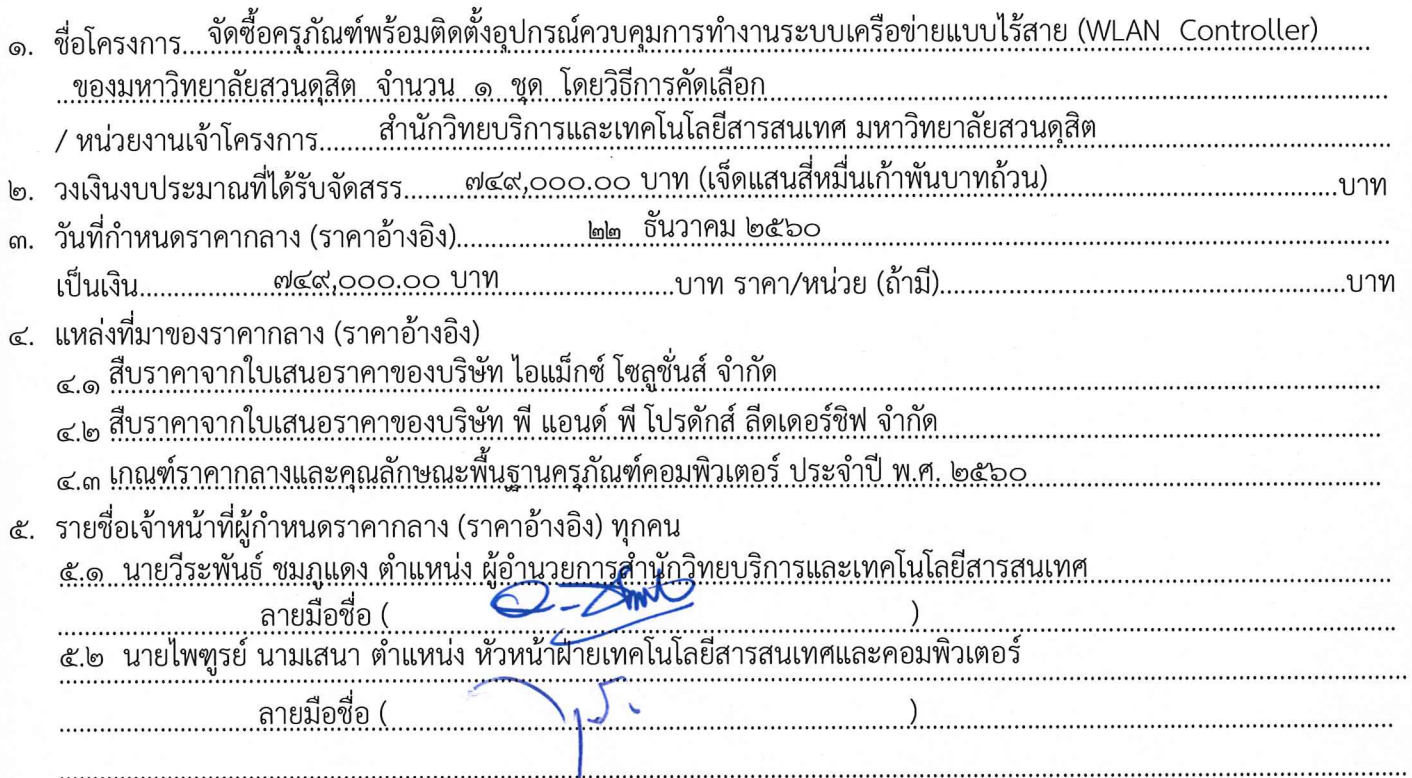 ๑. ชื่อโครงการ....จัดซื้อครุภัณฑ์พร้อมติดตั้งอุปกรณ์ควบคุมการทำงานระบบเครือข่ายแบบไร้สาย (WLAN Controller)
ของมหาวิทยาลัยสวนดุสิต จำนวน ๑ ชุด โดยวิธีการคัดเลือก
/ หน่วยงานเจ้าโครงการ.........สำนักวิทยบริการและเทคโนโลยีสารสนเทศ มหาวิทยาลัยสวนดุสิต
๒. วงเงินงบประมาณที่ได้รับจัดสรร..........๗๔๙,๐๐๐.๐๐ บาท (เจ็ดแสนสี่หมื่นเก้าพันบาทถ้วน)..........บาท
๓. วันที่กำหนดราคากลาง (ราคาอ้างอิง)....................๒๒ ธันวาคม ๒๕๖๐
เป็นเงิน....................๗๔๙,๐๐๐.๐๐ บาท....................บาท ราคา/หน่วย (ถ้ามี)....................บาท
๔. แหล่งที่มาของราคากลาง (ราคาอ้างอิง)
๔.๑ สืบราคาจากใบเสนอราคาของบริษัท ไอแม็กซ์ โซลูชั่นส์ จำกัด
๔.๒ สืบราคาจากใบเสนอราคาของบริษัท พี แอนด์ พี โปรดักส์ ลีดเดอร์ชิฟ จำกัด
๔.๓ เกณฑ์ราคากลางและคุณลักษณะพื้นฐานครุภัณฑ์คอมพิวเตอร์ ประจำปี พ.ศ. ๒๕๖๐
๕. รายชื่อเจ้าหน้าที่ผู้กำหนดราคากลาง (ราคาอ้างอิง) ทุกคน
๕.๑ นายวีระพันธ์ ชมภูแดง ตำแหน่ง ผู้อำนวยการสำนักวิทยบริการและเทคโนโลยีสารสนเทศ
ลายมือชื่อ ( )
๕.๒ นายไพฑูรย์ นามเสนา ตำแหน่ง หัวหน้าฝ่ายเทคโนโลยีสารสนเทศและคอมพิวเตอร์
ลายมือชื่อ ( )